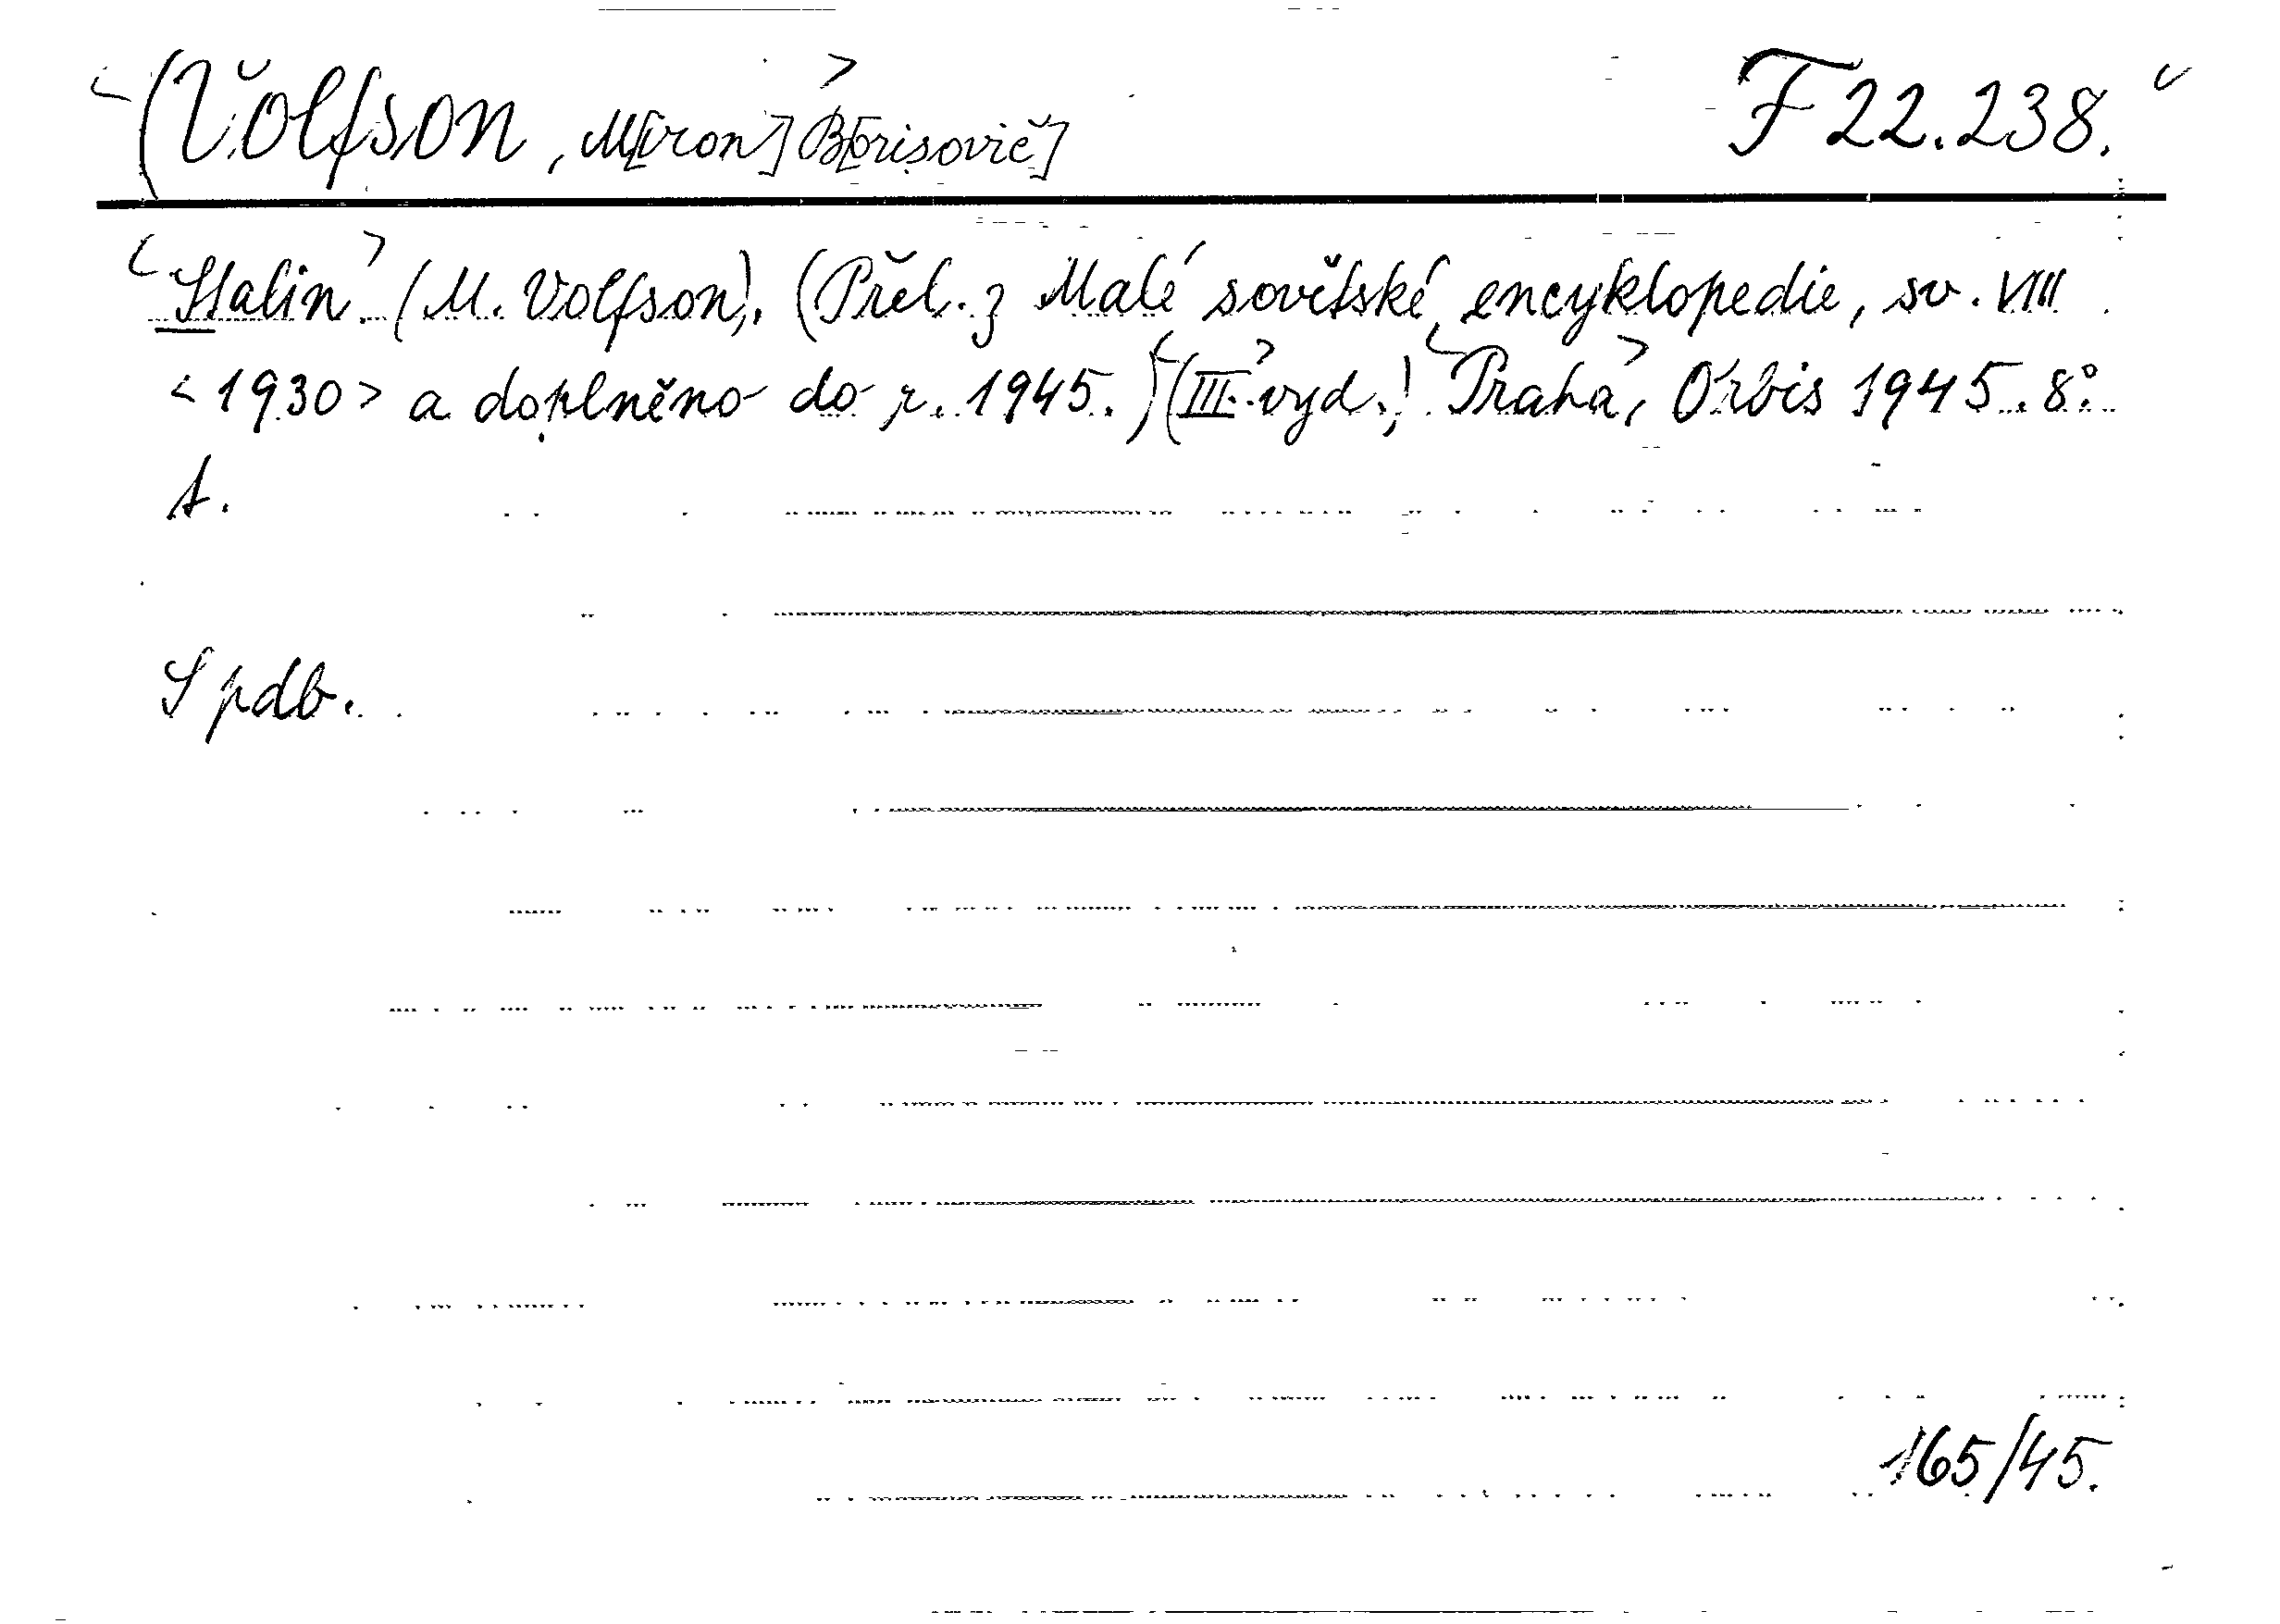 (Volfson, M[iron] B[orisovič] F 22.238.
Stalin. (M. Volfson). (Přel. z Malé sovětské encyklopedie, sv. VIII
<1930> a doplněno do r. 1945.) (III. vyd.) Praha, Orbis 1945. 8°
t.
S pdb.
165/45.